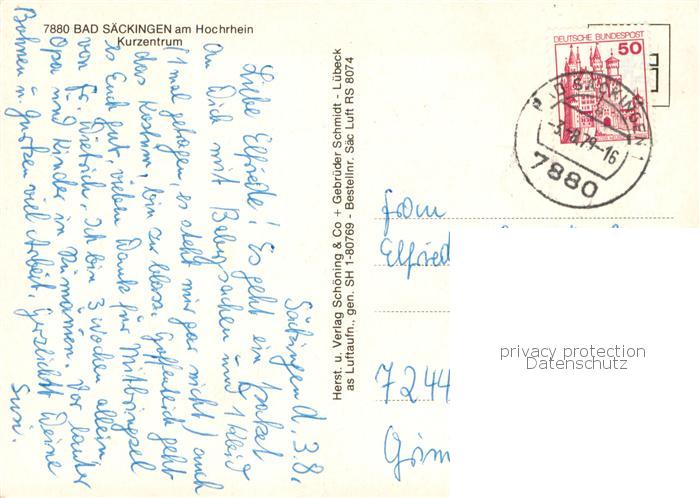 7880 BAD SÄCKINGEN am Hochrhein
Kurzentrum
Säckingen d. 3.8.
Liebe Elfriede! Es geht ein Paket
an Dich mit Babysachen und 1 Kleid
(1 mal getragen, es steht mir gar nicht) auch
das Kostüm, bin zu blass. Hoffentlich geht
es Euch gut, vielen Dank für Mitbringsel
von Fr. Dietrich. Ich bin 3 Wochen allein,
Opa und Kinder in Rumänien. Vor lauter
Bohnen u. Gurken viel Arbeit. Herzlichst Deine
Susi.
Herst. u. Verlag Schöning & Co + Gebrüder Schmidt - Lübeck
as Luftaufn., gen. SH 1-80769 - Bestellnr. Säc Luft RS 8074
DEUTSCHE BUNDESPOST
50
BAD SÄCKINGEN 1
-3.-8.79-16
7880
Elfried
7244
privacy protection
Datenschutz